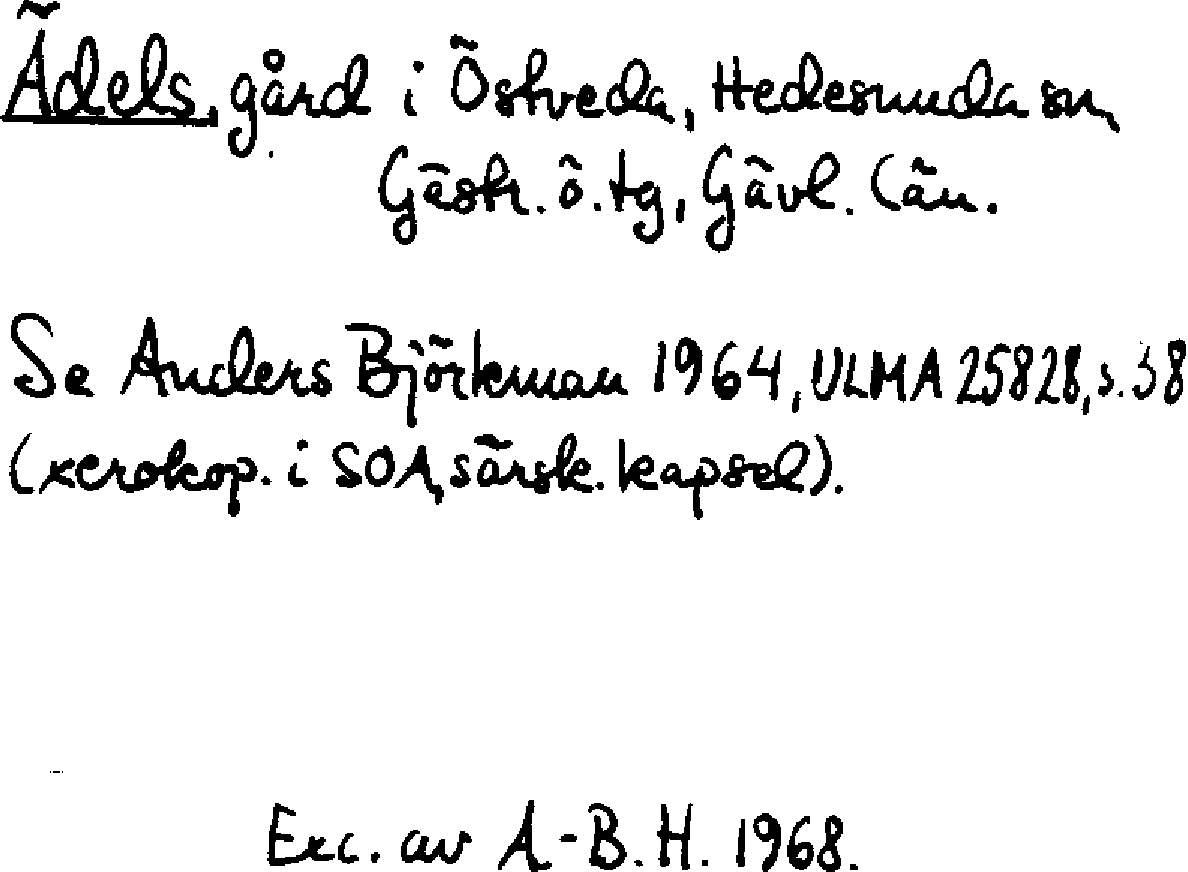 Ädels, gård i Östveda, Hedesunda sn,
Gästr. ö. tg, Gävl. län.
Se Anders Björkman 1964, ULMA 25828, s. 38
(xerokop. i SOA, särsk. kapsel).
Exc. av A-B. H. 1968.